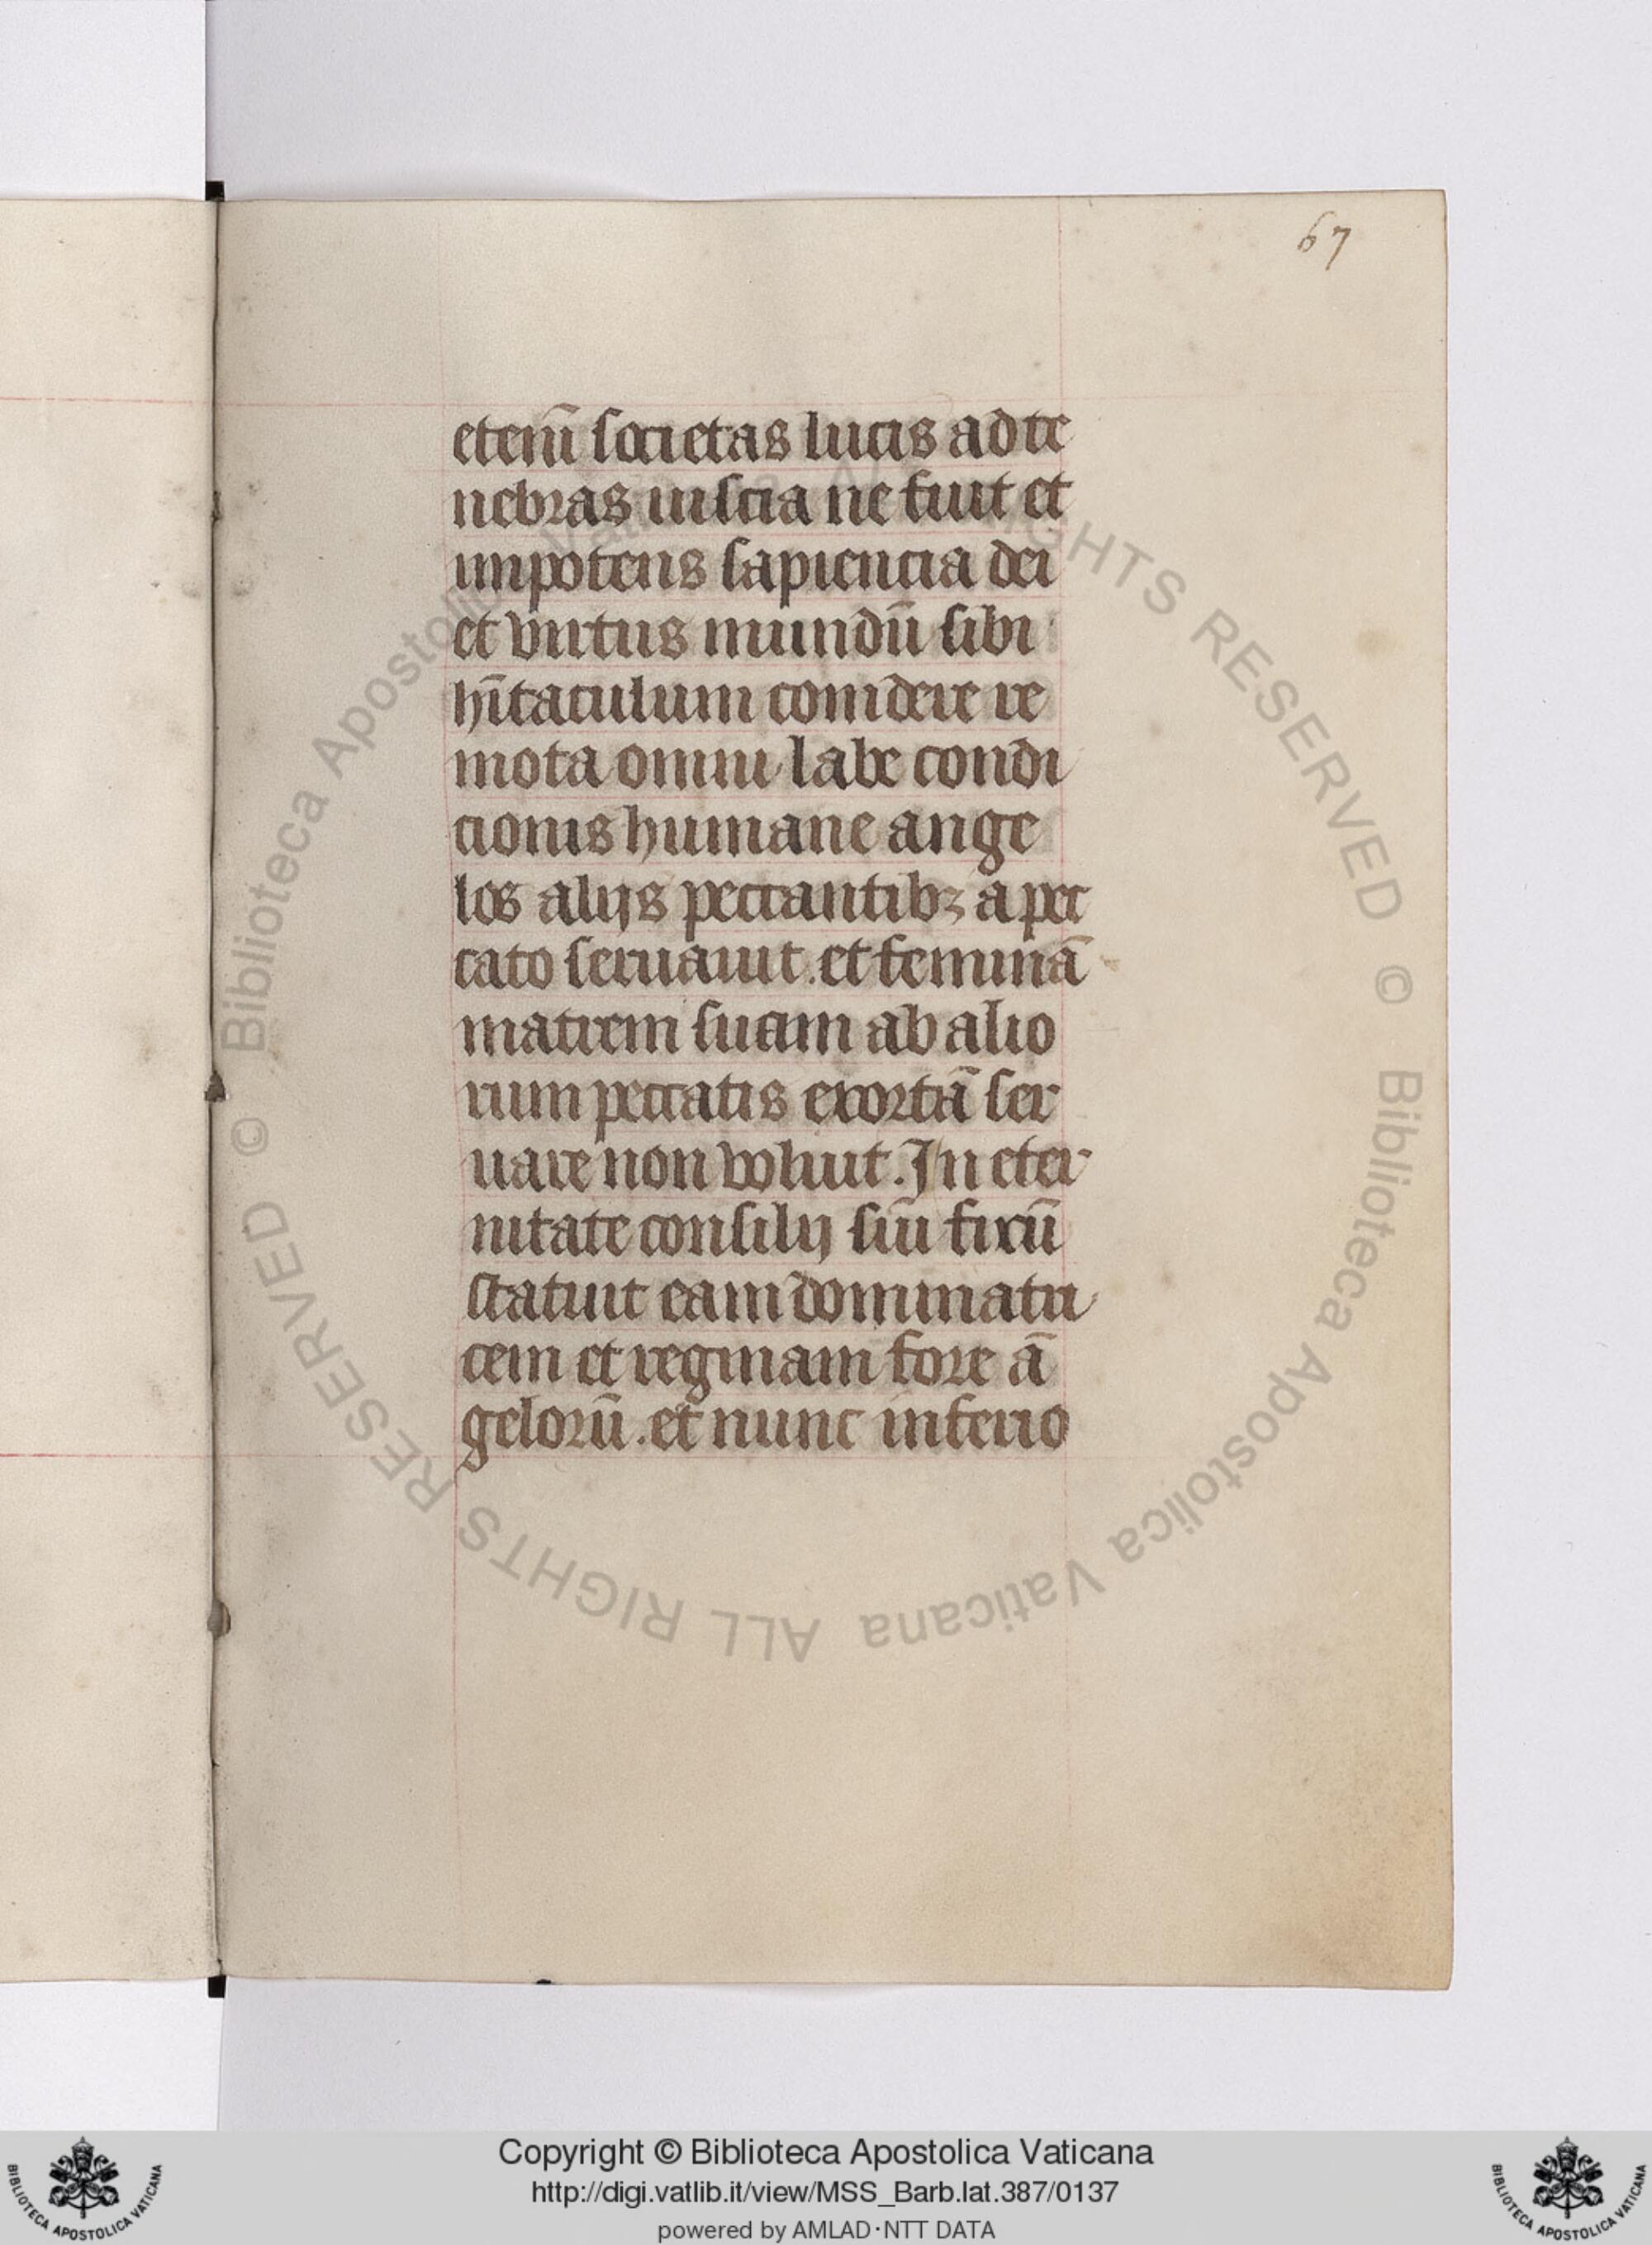 67
etenī societas lucis ad te
nebras inscia ne fuit et
impotens sapiencia dei
et virtus mundū sibi
hītaculum condere re
mota omni labe condi
cionis humane ange
los alijs peccantibꝫ a pec
cato seruauit. et feminā
matrem suam ab alio
rum peccatis exortā ser
uare non voluit. In eter
nitate consilij sui fixū
statuit eam dominatri
cem et reginam fore ā
gelorū. et nunc inferio
© Biblioteca Apostolica Vaticana ALL RIGHTS RESERVED © Biblioteca Apostolica Vaticana ALL RIGHTS RESERVED
Copyright © Biblioteca Apostolica Vaticana
http://digi.vatlib.it/view/MSS_Barb.lat.387/0137
powered by AMLAD·NTT DATA
BIBLIOTECA APOSTOLICA VATICANA
BIBLIOTECA APOSTOLICA VATICANA